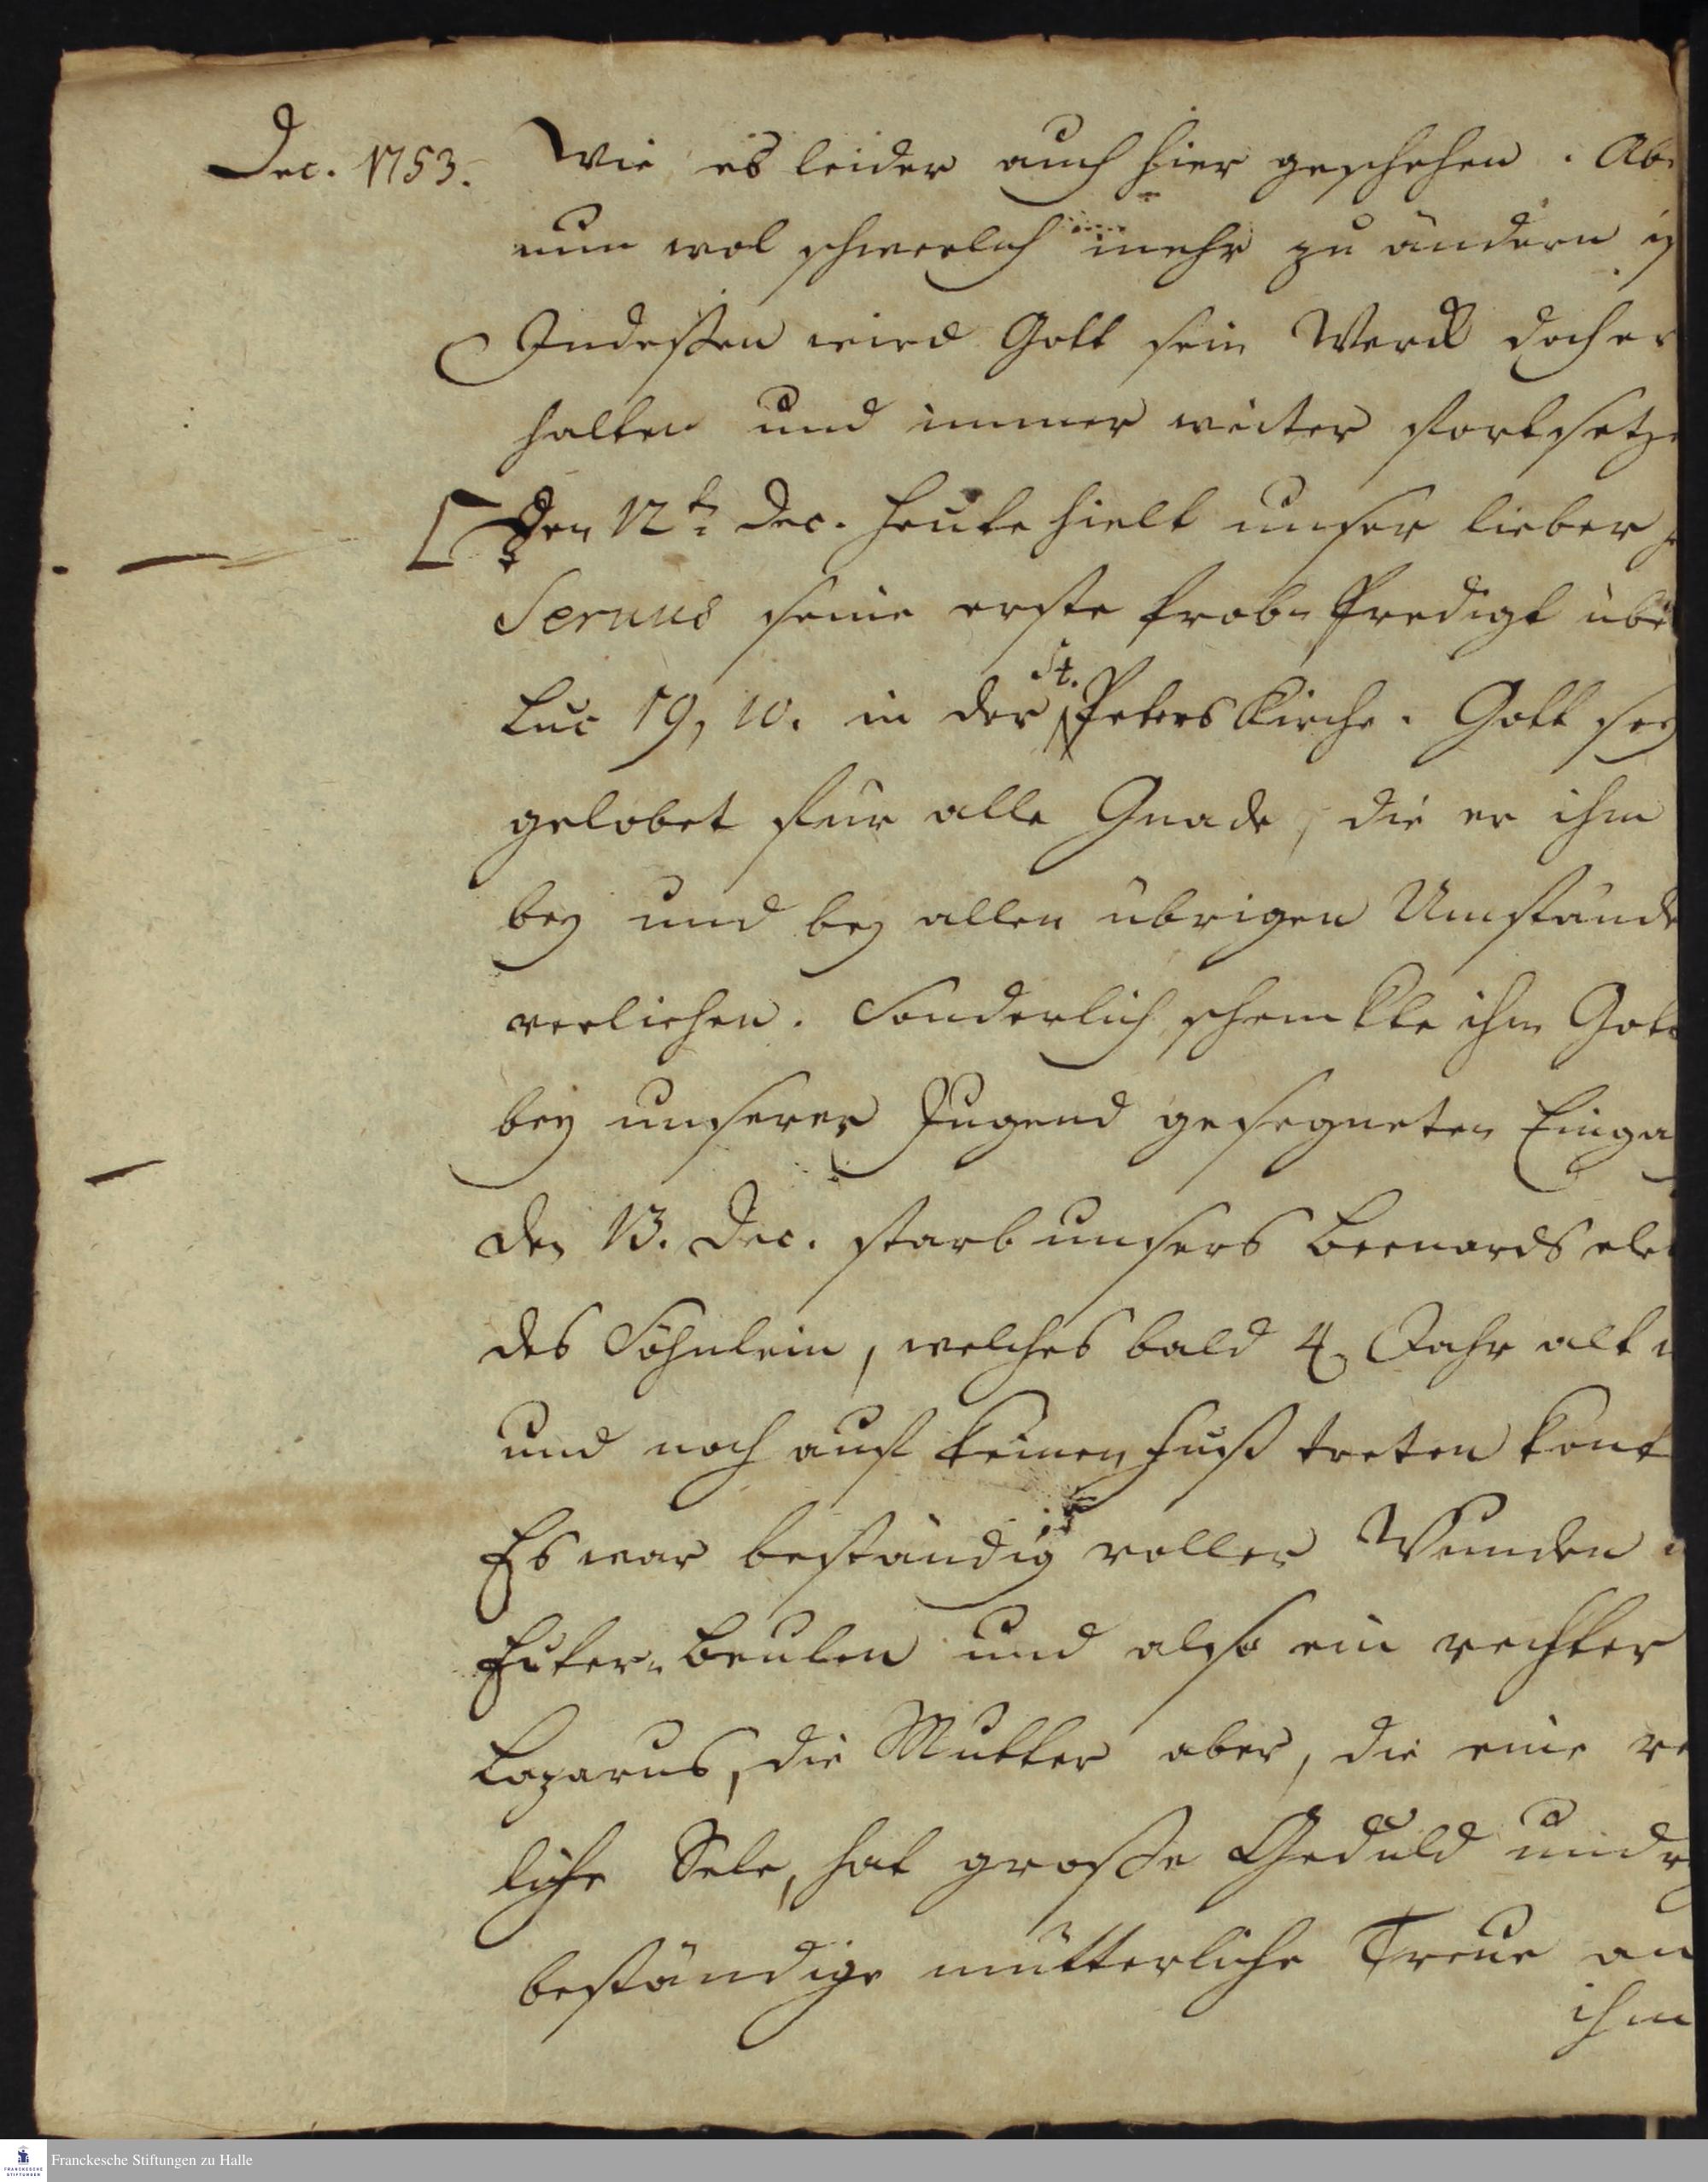 Dec. 1753.
Wie es leider auch hier geschehen. Ab
nun wol schwerlich mehr zu ändern is
Indeßen wird Gott sein Werck doch er
halten und immer weiter fortsetze
Den 12t. Dec. Heute hielt unser lieber
Servus seine erste Prob-Predigt übe
Luc 19, 10. in der St. Peters Kirche. Gott sey
gelobet für alle Gnade, die er ihm
bey und bey allen übrigen Umstände
verliehen. Sonderlich schenckte ihm Gott
bey unserer Jugend gesegneten Einga
den 13. Dec. starb unsers Bernards elen
des Söhnlein, welches bald 4 Jahr alt
und noch auf keinen Fuß treten kont
Es war beständig voller Wunden
Eiter-Beulen und also ein rechter
Lazarus, die Mutter aber, die eine re
liche Sele, hat große Geduld und
beständige mütterliche Treue an
ihm
Franckesche Stiftungen zu Halle